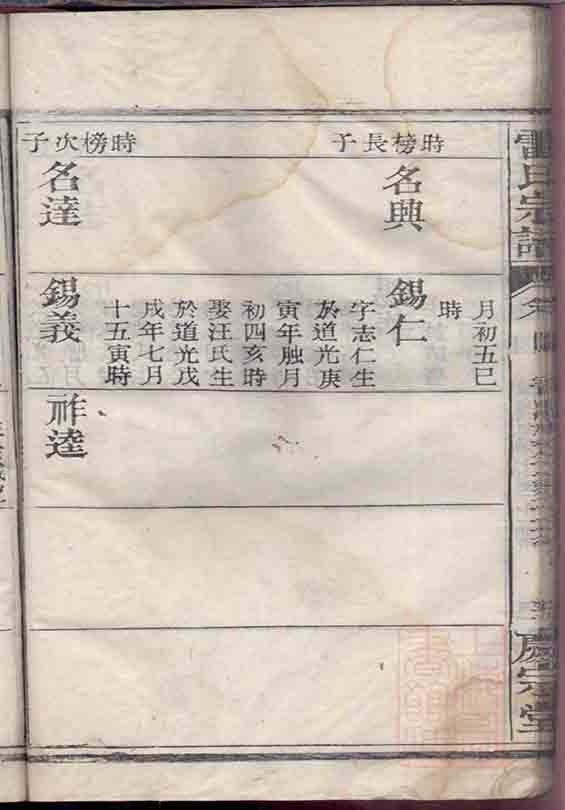 時榜長子
名興
月初五巳
時
錫仁
字志仁生
於道光庚
寅年
月
初四亥時
娶汪氏生
於道光戊
戌年七月
十五寅時
時榜次子
名達
錫義
祚逵
氏宗譜
宗堂